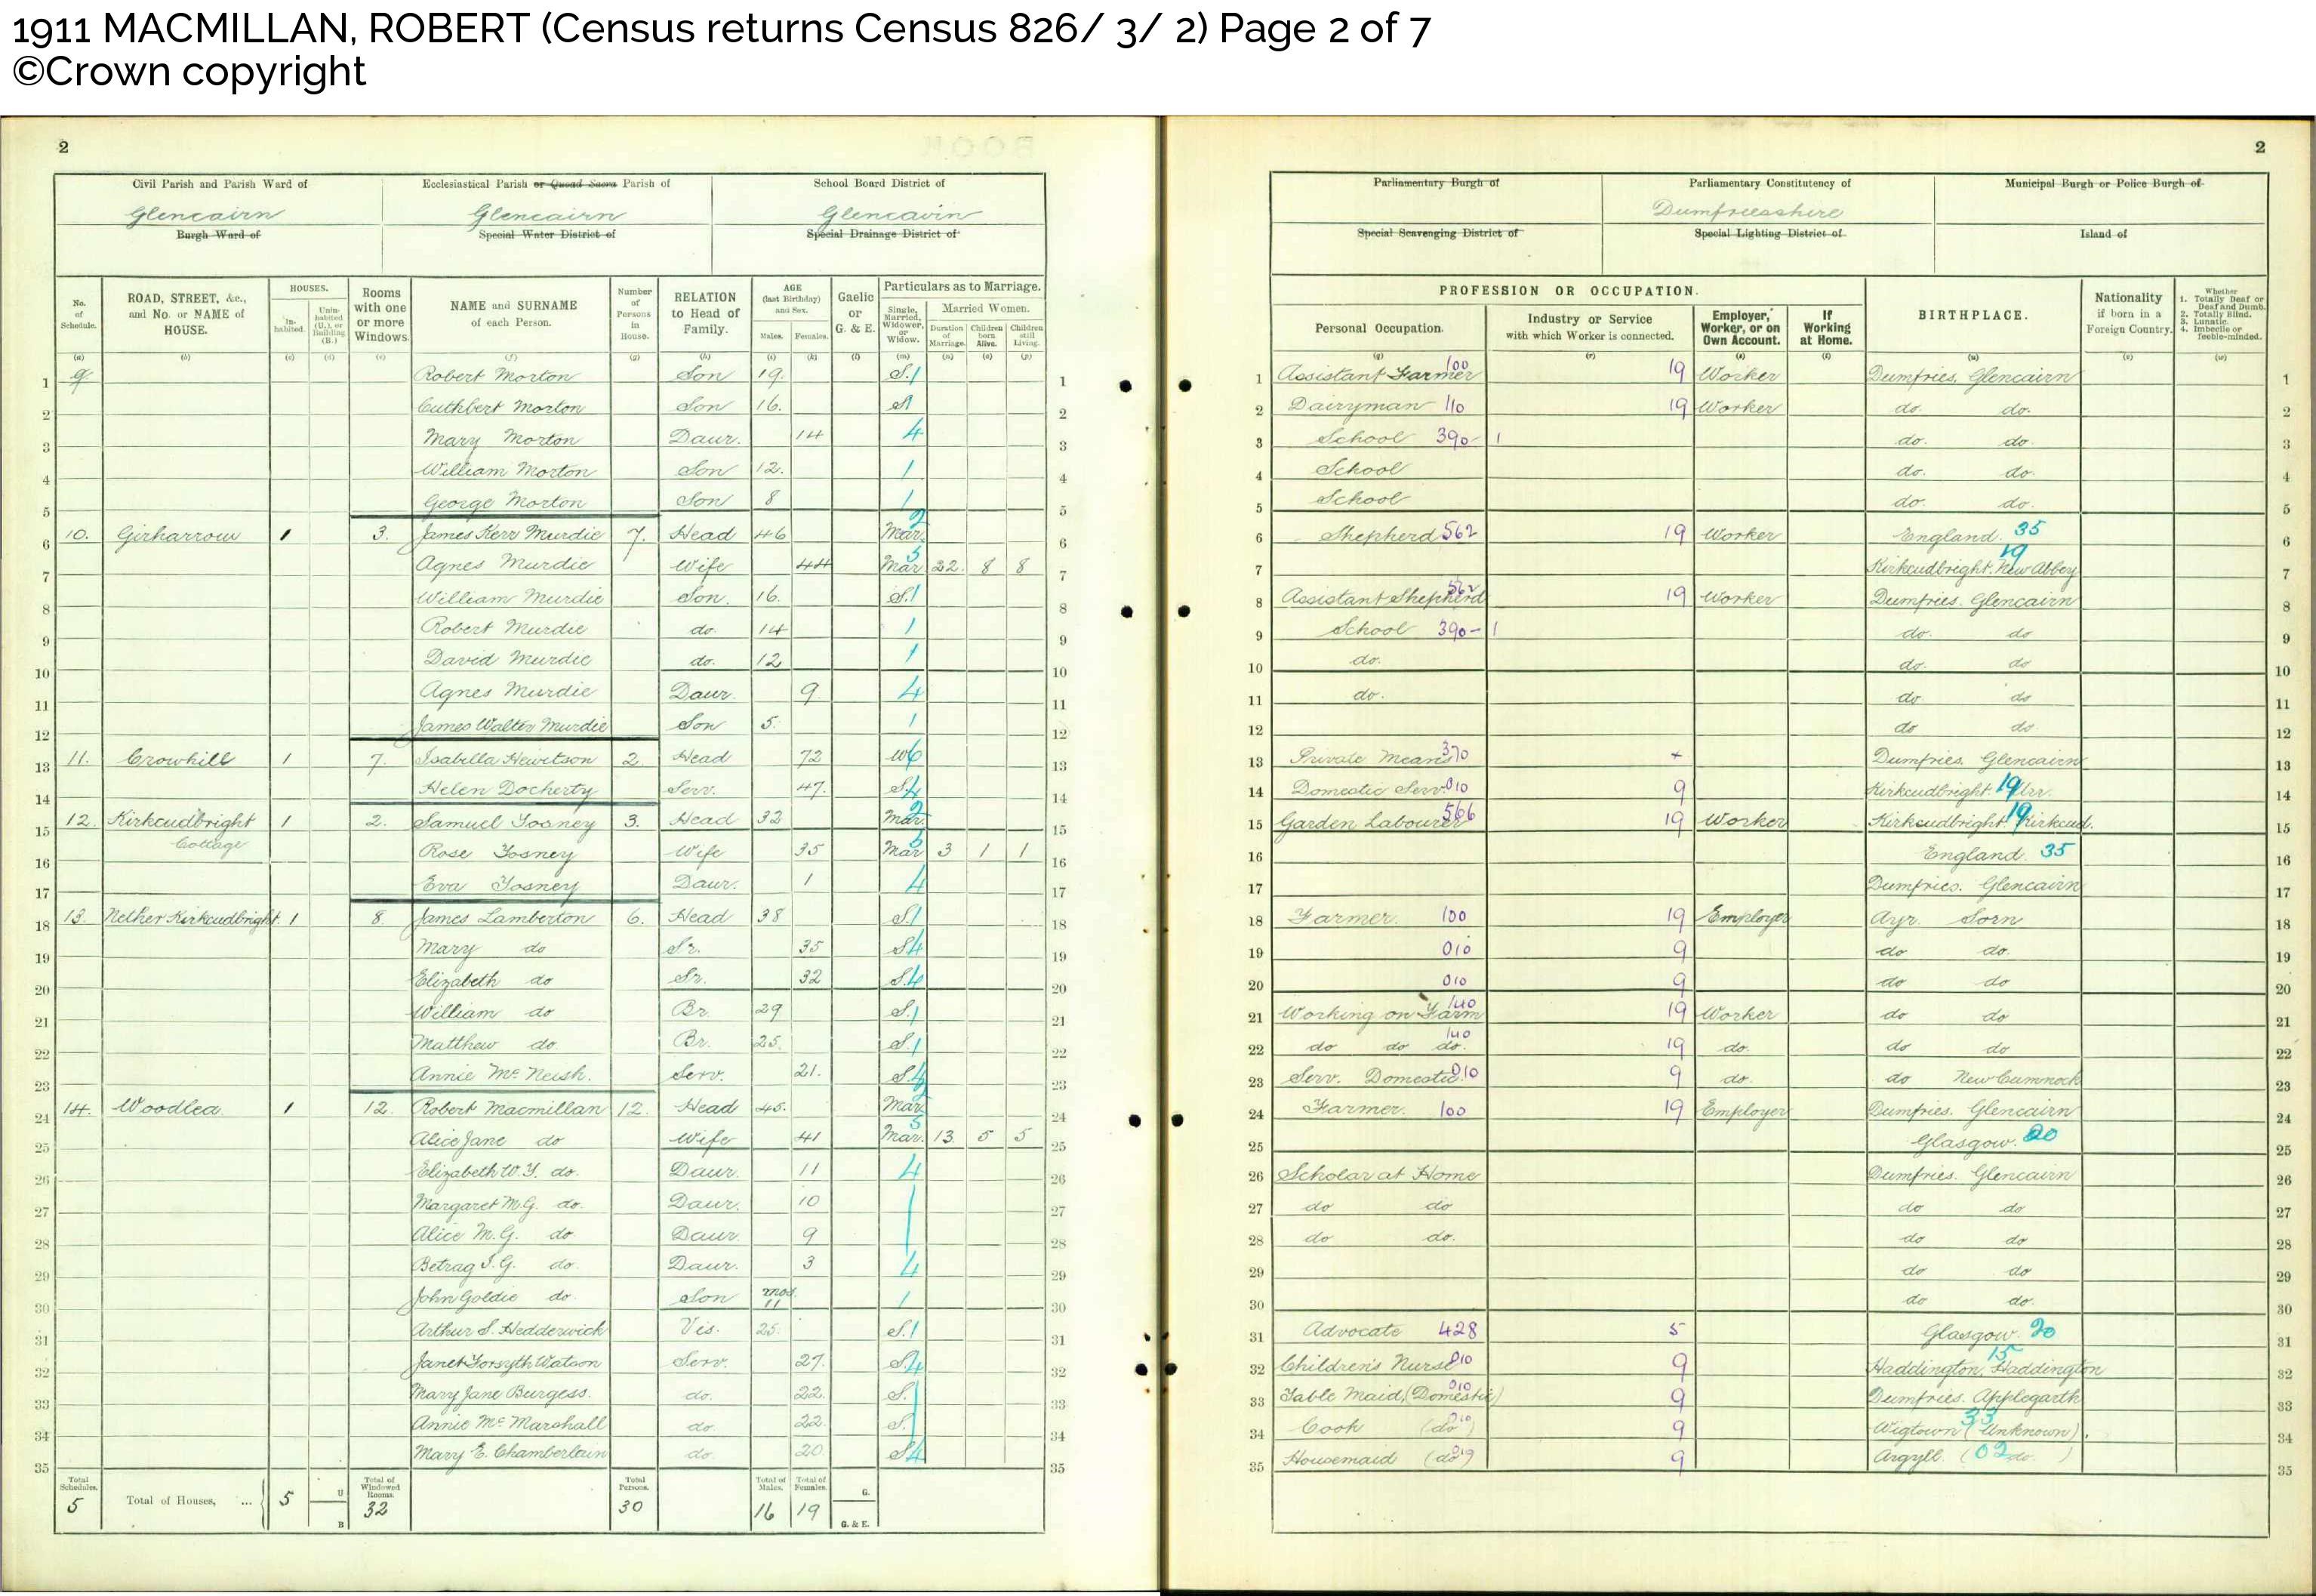 1911 MACMILLAN, ROBERT (Census returns Census 826/ 3/ 2) Page 2 of 7
©Crown copyright
2
Civil Parish and Parish Ward of Ecclesiastical Parish or Quoad Sacra Parish of School Board District of
Glencairn Glencairn Glencairn
Burgh Ward of Special Water District of Special Drainage District of
No. of Schedule. ROAD, STREET, &c., and No. or NAME of HOUSE. HOUSES. Inhabited. Uninhabited (U.), or Building (B.) Rooms with one or more Windows. NAME and SURNAME of each Person. Number of Persons in House. RELATION to Head of Family. AGE (last Birthday) and Sex. Males. Females. Gaelic or G. & E. Particulars as to Marriage. Single, Married, Widower, or Widow. Married Women. Duration of Marriage. Children born Alive. Children still Living.
(a) (b) (c) (d) (e) (f) (g) (h) (i) (k) (l) (m) (n) (o) (p)
1 9 Robert Morton Son 19. S. 1 1
2 Cuthbert Morton Son 16. S 1 2
3 Mary Morton Daur. 14 4 3
4 William Morton Son 12. 1 4
5 George Morton Son 8 1 5
6 10. Girharrow 1 3. James Kerr Murdie 7. Head 46 Mar. 2 6
7 Agnes Murdie Wife 44 Mar 5 22. 8 8 7
8 William Murdie Son. 16. S. 1 8
9 Robert Murdie do. 14 1 9
10 David Murdie do. 12 1 10
11 Agnes Murdie Daur. 9 4 11
12 James Walter Murdie Son 5. 1 12
13 11. Crowhill 1 7. Isabella Hewitson 2. Head 72 W 6 13
14 Helen Docherty Serv. 47. S. 4 14
15 12. Kirkcudbright 1 2. Samuel Tosney 3. Head 33 Mar. 2 15
16 Cottage Rose Tosney Wife 35 Mar 5 3 1 1 16
17 Eva Tosney Daur. 1 4 17
18 13. Nether Kirkcudbright. 1 8. James Lamberton 6. Head 38 S. 1 18
19 Mary do Sr. 35 S 4 19
20 Elizabeth do Sr. 32 S. 4 20
21 William do Br 29 S. 1 21
22 Matthew do. Br. 25. S. 1 22
23 Annie Mc Neish. Serv. 21. S. 4 23
24 14. Woodlea. 1 12. Robert Macmillan 12. Head 45. Mar 2 24
25 Alice Jane do Wife 41 Mar. 5 13. 5 5 25
26 Elizabeth W.Y. do. Daur. 11 4 26
27 Margaret M.G. do. Daur. 10 27
28 Alice M.G. do Daur. 9 28
29 Betrag S.G. do. Daur. 3 4 29
30 John Goldie do. Son mos. 11 1 30
31 Arthur S. Hedderwick Vis. 25. S. 1 31
32 Janet Forsyth Watson Serv. 27. S. 4 32
33 Mary Jane Burgess. do. 22. S. 33
34 Annie Mc Marshall do. 22. S. 34
35 Mary E. Chamberlain do. 20. S 4 35
Total Schedules. 5 Total of Houses, ... 5 U B Total of Windowed Rooms. 32 Total Persons. 30 Total of Males. 16 Total of Females. 19 G. G. & E.
2
Parliamentary Burgh of Parliamentary Constitutency of Municipal Burgh or Police Burgh of
Dumfriesshire
Special Scavenging District of Special Lighting District of Island of
PROFESSION OR OCCUPATION. Personal Occupation. Industry or Service with which Worker is connected. Employer, Worker, or on Own Account. If Working at Home. BIRTHPLACE. Nationality if born in a Foreign Country. Whether 1. Totally Deaf or Deaf and Dumb. 2. Totally Blind. 3. Lunatic. 4. Imbecile or feeble-minded.
(q) (r) (s) (t) (u) (v) (w)
1 Assistant Farmer 100 19 Worker Dumfries. Glencairn 1
2 Dairyman 110 19 Worker do. do. 2
3 School 390-1 do. do. 3
4 School do. do. 4
5 School do. do. 5
6 Shepherd 562 19 Worker England. 35 6
7 Kirkcudbright. New Abbey 19 7
8 Assistant Shepherd 562 19 Worker Dumfries. Glencairn 8
9 School 390-1 do. do 9
10 do. do. do 10
11 do. do do 11
12 do do. 12
13 Private Means 370 + Dumfries. Glencairn 13
14 Domestic Serv. 010 9 Kirkcudbright. 19 Urr. 14
15 Garden Labourer 566 19 Worker Kirkcudbright. 19 Kirkcud. 15
16 England. 35 16
17 Dumfries. Glencairn 17
18 Farmer. 100 19 Employer Ayr. Sorn 18
19 010 9 do do. 19
20 010 9 do do 20
21 Working on Farm 140 19 Worker do do 21
22 do do do. 140 19 do. do do 22
23 Serv. Domestic 010 9 do do New Cumnock 23
24 Farmer. 100 19 Employer Dumfries. Glencairn 24
25 Glasgow. 20 25
26 Scholar at Home Dumfries. Glencairn 26
27 do do do do 27
28 do do. do do 28
29 do do 29
30 do do. 30
31 Advocate 428 5 Glasgow. 20 31
32 Children's Nurse 010 9 Haddington, Haddington 15 32
33 Table Maid, (Domestic) 010 9 Dumfries. Applegarth 33
34 Cook (do) 010 9 Wigtown (Unknown). 33 34
35 Housemaid (do) 019 9 Argyll. (02 do. ) 35